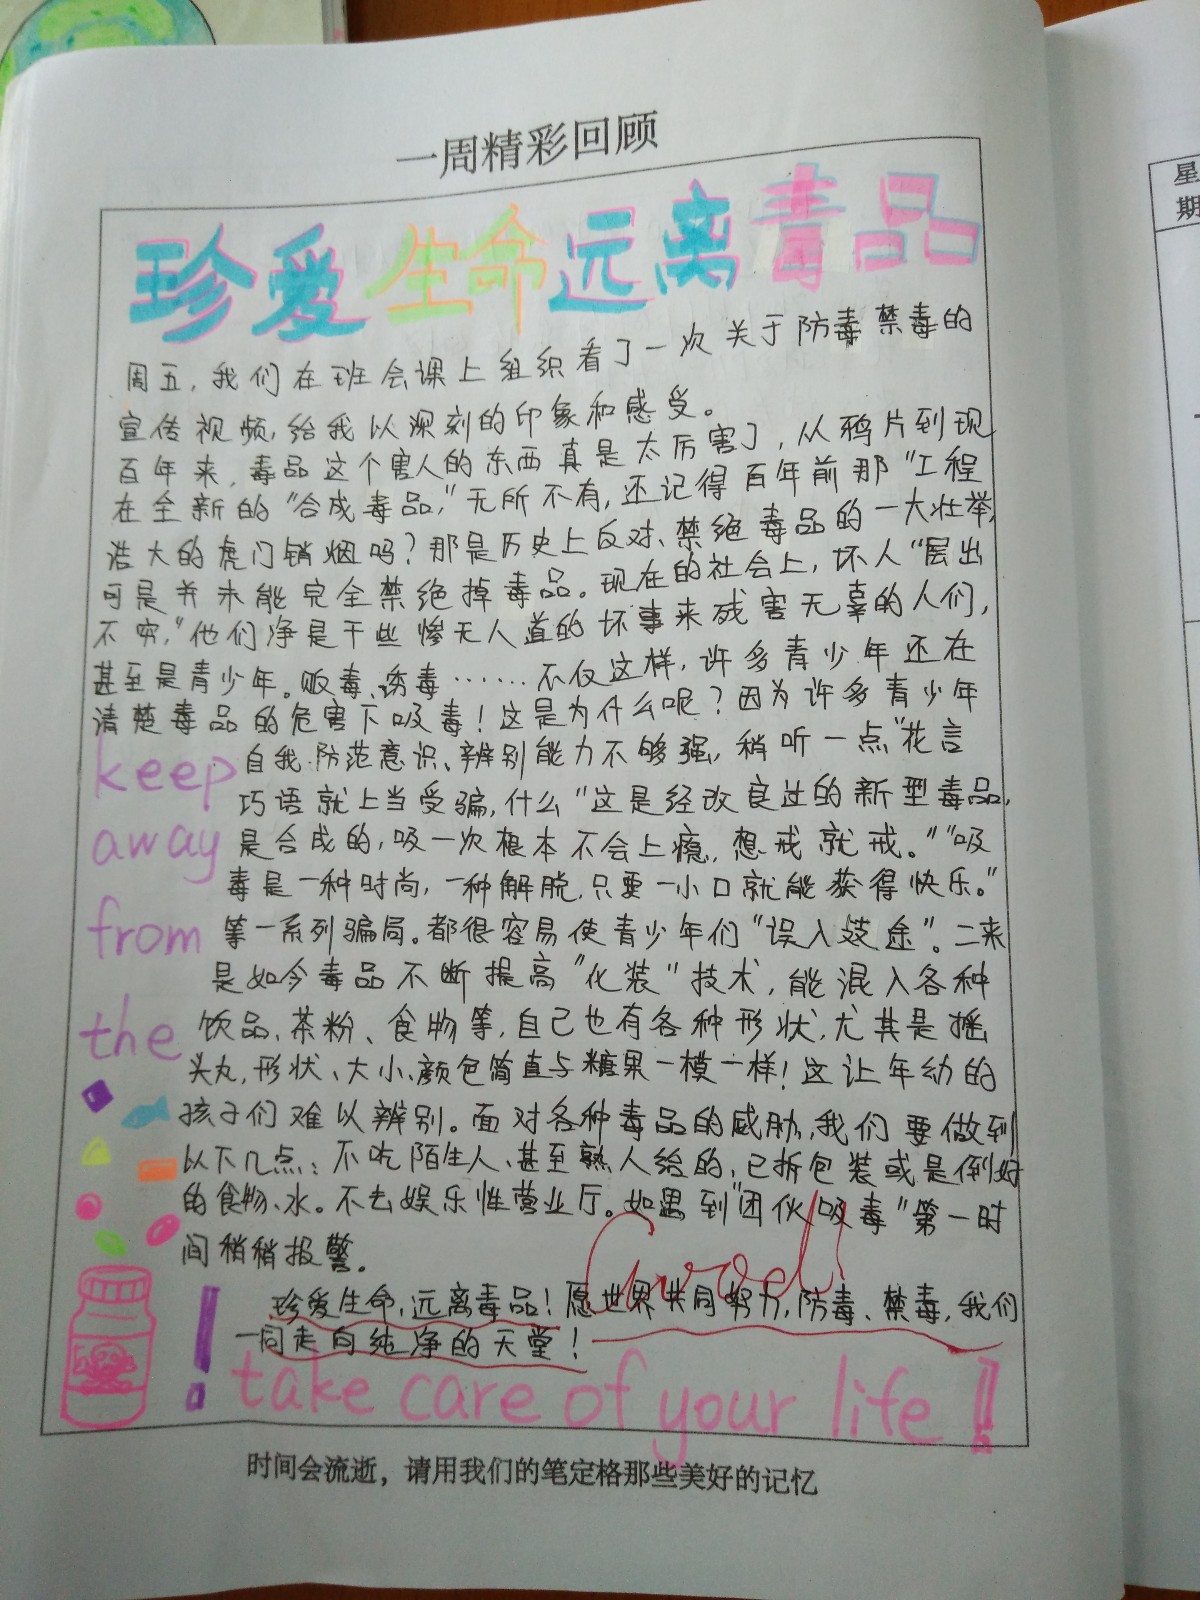 一周精彩回顾
珍爱生命远离毒品
周五,我们在班会课上组织看了一次关于防毒禁毒的
宣传视频,给我以深刻的印象和感受。
百年来,毒品这个害人的东西真是太厉害了,从鸦片到现
在全新的“合成毒品,”无所不有,还记得百年前那“工程
浩大的虎门销烟吗?那是历史上反对、禁绝毒品的一大壮举,
可是并未能完全禁绝掉毒品。现在的社会上,坏人“层出
不穷,”他们净是干些惨无人道的坏事来残害无辜的人们,
甚至是青少年。贩毒、诱毒……不仅这样,许多青少年还在
清楚毒品的危害下吸毒!这是为什么呢?因为许多青少年
自我防范意识、辨别能力不够强,稍听一点“花言
巧语就上当受骗,什么“这是经改良过的新型毒品,
是合成的,吸一次根本不会上瘾,想戒就戒。”“吸
毒是一种时尚,一种解脱,只要一小口就能获得快乐。”
等一系列骗局。都很容易使青少年们“误入歧途”。二来
是如今毒品不断提高“化装”技术,能混入各种
饮品、茶粉、食物等,自己也有各种形状,尤其是摇
头丸,形状、大小、颜色简直与糖果一模一样!这让年幼的
孩子们难以辨别。面对各种毒品的威胁,我们要做到
以下几点:不吃陌生人、甚至熟人给的,已拆包装或是倒好
的食物、水。不去娱乐性营业厅。如遇到“团伙吸毒”第一时
间稍稍报警。
珍爱生命,远离毒品!愿世界共同努力,防毒、禁毒,我们
一同走向纯净的天堂!
Good!
keep
away
from
the
take care of your life!!
时间会流逝,请用我们的笔定格那些美好的记忆
星
期